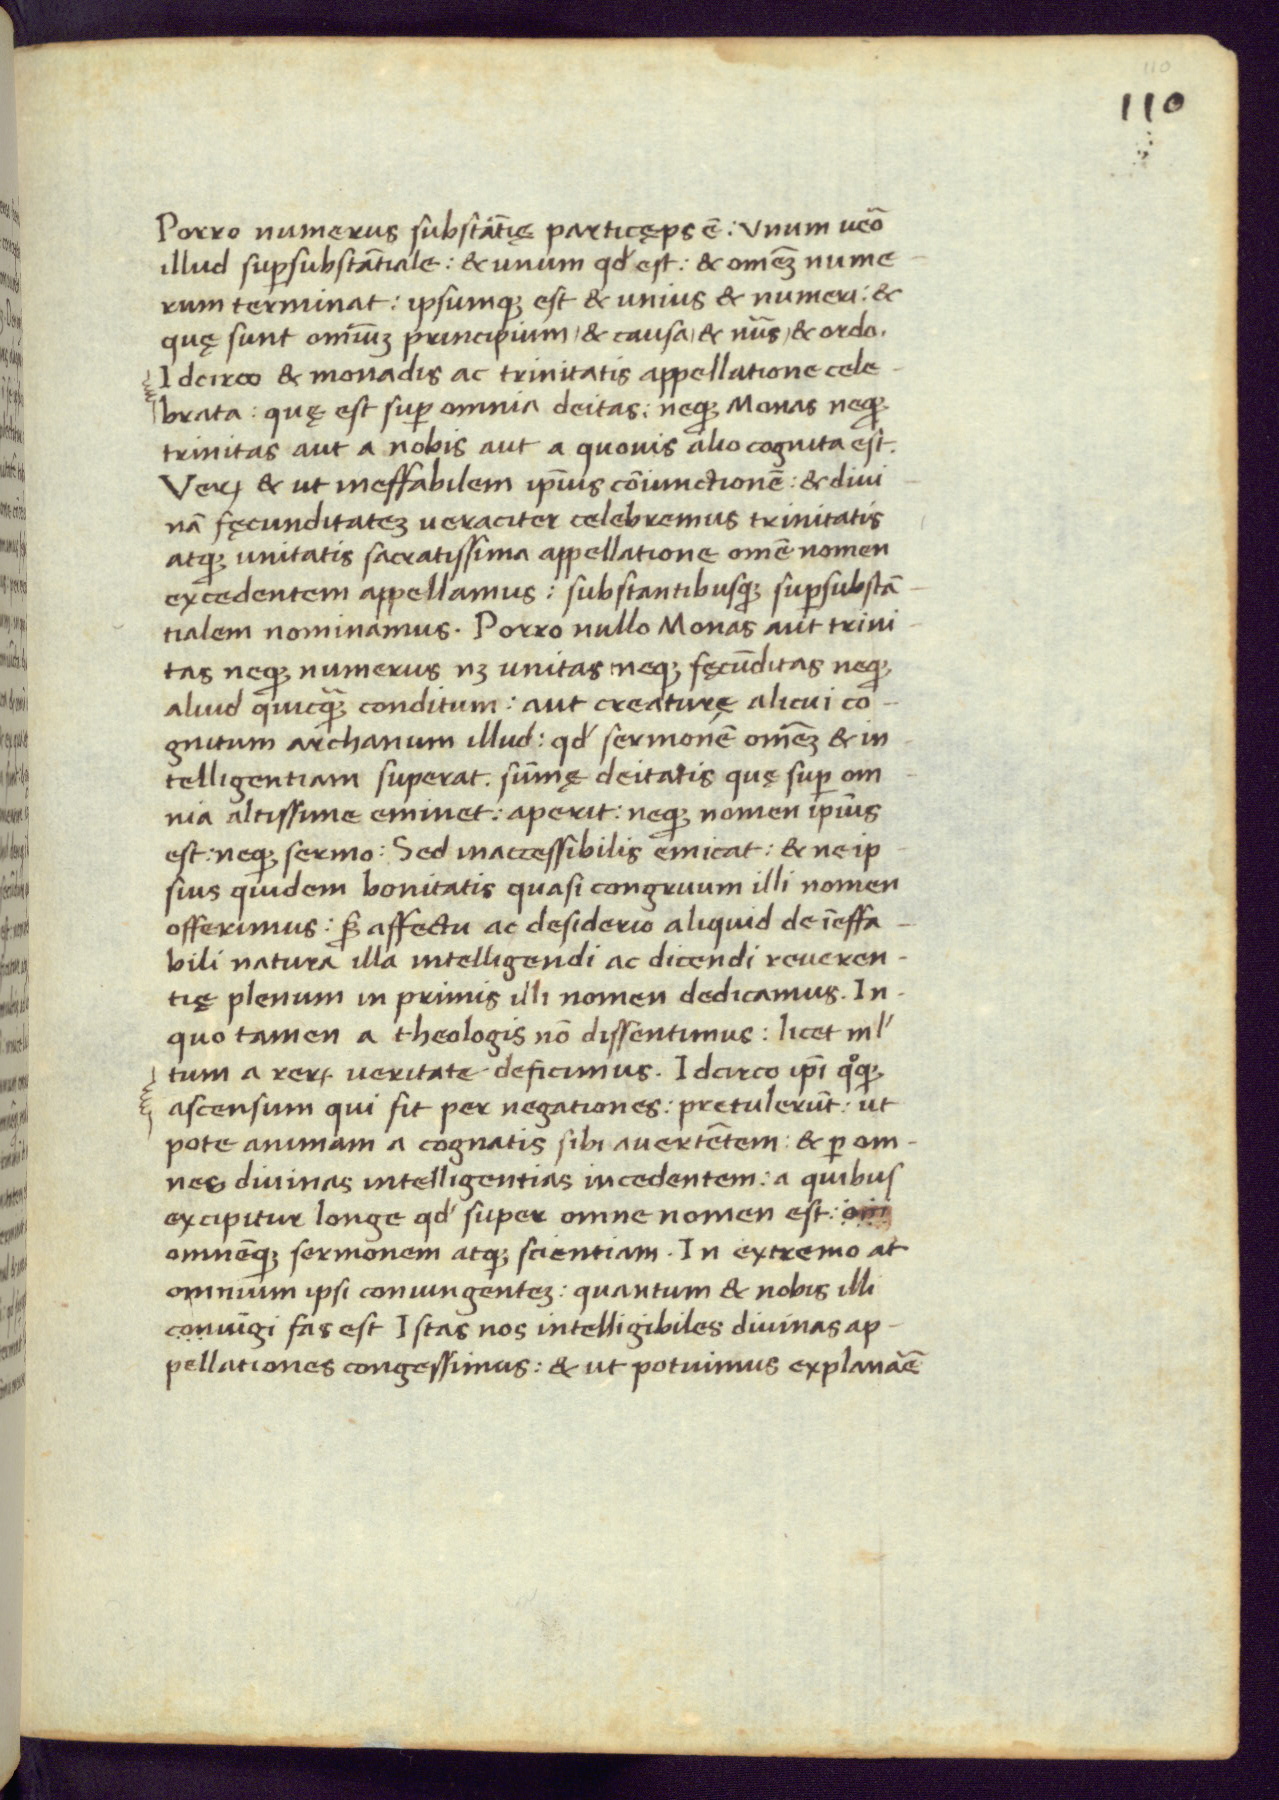 110
110
Porro numerus substātię particęps ē: Vnum ueō
illud suꝑsubstātiale: & unum qđ est: & omēꝫ nume
rum terminat: ipsumqꝫ est & unius & numeri: &
quę sunt omīuꝫ principium / & causa / & nūs / & ordo.
Idcirco & monadis ac trinitatis appellatione cele-
brata: quę est suꝑ omnia deitas: neqꝫ Monas neqꝫ
trinitas aut a nobis aut a quouis alio cognita est.
Veꝝ & ut ineffabilem ip̄ius cōiunctionē: & diui
nā fęcunditateꝫ ueraciter celebremus trinitatis
atqꝫ unitatis sacratissima appellationę omē nomen
excedentem appellamus: substantibusqꝫ suꝑsubstā-
tialem nominamus. Porro nullo Monas aut trini-
tas neqꝫ numerus nꝫ unitas neqꝫ fęcūditas neqꝫ
aliud quicqꝫ conditum: aut creaturę alicui co-
gnitum archanum illud: qđ sermonē omēꝫ & in
telligentiam superat. sūmę deitatis quę suꝑ om-
nia altissime eminet: aperit: neqꝫ nomen ip̄ius
est: neqꝫ sermo: Sed inaccessibilis emicat: & ne ip-
sius quidem bonitatis quasi congruum illi nomen
offerimus: ꝭ affectu ac desiderio aliquid de īeffa-
bili natura illa intelligendi ac dicendi reueren-
tię plenum in primis illi nomen dedicamus. In-
quo tamen a theologis nō dissentimus: licet ml'
tum a reꝝ ueritate deficimus. Idcirco ip̄i qͦqꝫ
ascensum qui fit per negationes: pretulerūt: ut
pote animam a cognatis sibi auertētem: & ꝑ om-
nes diuinas intelligentias incedentem: a quibus
excipitur longe qđ super omne nomen est:
omnēqꝫ sermonem atqꝫ scientiam. In extremo at
omnium ipsi coniungenteꝫ: quantum & nobis illi
coniūgi fas est Istas nos intelligibiles diuinas ap-
pellationes congessimus: & ut potuimus explanāē